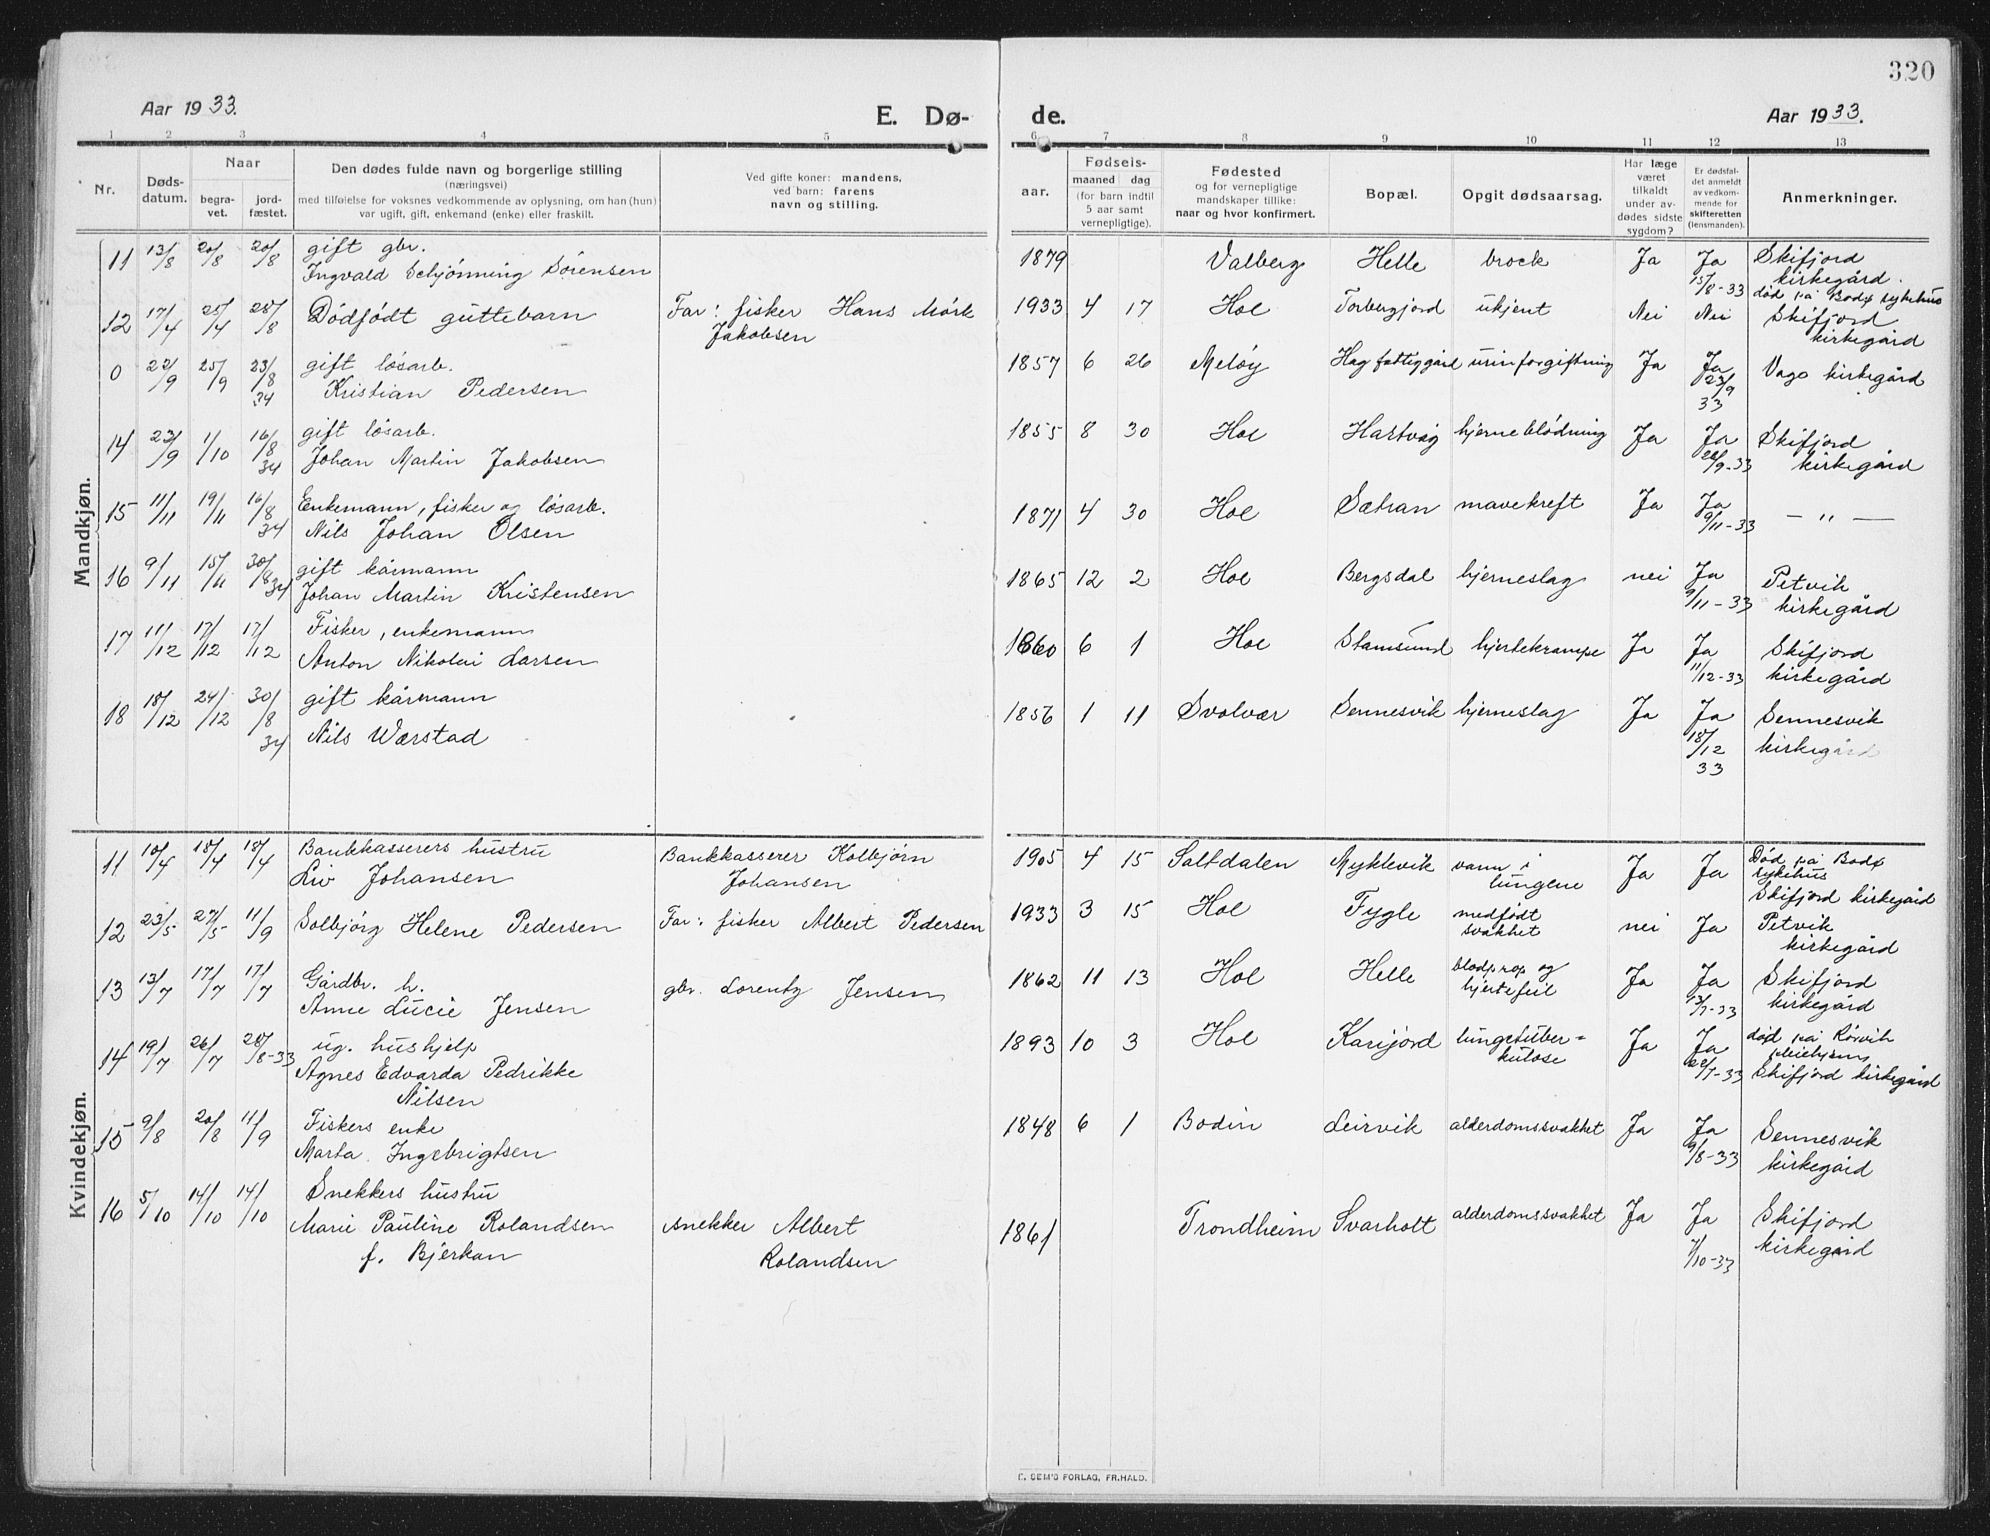 320
Aar 1933.
E. Dø-
de.
Aar 1933.
1 2 3 4 5 6 7 8 9 10 11 12 13
Nr.
Døds-
datum.
Naar
begra-
vet.
jord-
fæstet.
Den dødes fulde navn og borgerlige stilling
(næringsvei)
med tilføielse for voksnes vedkommende av oplysning, om han (hun)
var ugift, gift, enkemand (enke) eller fraskilt.
Ved gifte koner: mandens,
ved barn: farens
navn og stilling.
Fødsels-
aar.
maaned dag
(for barn indtil
5 aar samt
vernepligtige).
Fødested
og for vernepligtige
mandskaper tillike:
naar og hvor konfirmert.
Bopæl.
Opgit dødsaarsag.
Har læge
været
tilkaldt
under av-
dødes sidste
sygdom?
Er dødsfal-
det anmeldt
av vedkom-
mende for
skifteretten
(lensmanden).
Anmerkninger.
Mandkjøn.
11 13/8 20/8 20/8 gift gbr.
Ingvald Schjønning Sørensen
1879 Valberg Helle brock Ja Ja 15/8-33 Skifjord
kirkegård.
død på Bodø sykehus
12 17/4 25/4 28/8 Dødfødt guttebarn Far: fisker Hans Mørk
Jakobsen
1933 4 17 Hol Torbergjord ukjent Nei Nei Skifjord
kirkegård
0 22/9 25/9 23/8 34 gift løsarb.
Kristian Pedersen
1857 6 26 Meløy Hag fattiggård urinforgiftning Ja Ja 23/9 33 Vågø kirkegård
14 23/9 1/10 16/8 34 gift løsarb.
Johan Martin Jakobsen
1855 8 30 Hol Hartvåg hjerneblødning Ja Ja 26/9-33 Skifjord
kirkegård
15 11/11 19/11 16/8 34 Enkemann, fisker og løsarb.
Nils Johan Olsen
1871 4 30 Hol Sætran mavekreft Ja Ja 9/11-33 — " —
16 9/11 15/11 30/8 34 gift kårmann
Johan Martin Kristensen
1865 12 2 Hol Bergsdal hjerneslag nei Ja 9/11-33 Petvik
kirkegård
17 11/12 17/12 17/12 Fisker, enkemann
Anton Nikolai Larsen
1860 6 1 Hol Stamsund hjertekrampe Ja Ja 11/12-33 Skifjord
kirkegård
18 18/12 24/12 30/8 34 gift kårmann
Nils Wærstad
1856 1 11 Svolvær Sennesvik hjerneslag Ja Ja 18/12 33 Sennesvik
kirkegård
Kvindekjøn.
11 10/4 18/4 18/4 Bankkasserers hustru
Liv Johansen
Bankkasserer Kolbjørn
Johansen
1905 4 15 Saltdalen Myklevik vann i
lungene
Ja Ja Død på Bodø
sykehus
Skifjord kirkegård
12 23/5 27/5 11/9 Solbjørg Helene Pedersen Far: fisker Albert Pedersen
1933 3 15 Hol Fygle medfødt
svakhet
nei Ja Petvik
kirkegård
13 13/7 17/7 17/7 Gårdbr. h.
Anne Lucie Jensen
gbr. Lorentz Jensen
1862 11 13 Hol Helle blodprop og
hjertefeil
Ja Ja 13/7-33 Skifjord
kirkegård
14 19/7 26/7 28/8-33 ug. hushjelp
Agnes Edvarda Pedrikke
Nilsen
1893 10 3 Hol Karijord lungetuber=
kulose
Ja Ja 22/7-33 død på Rørvik
pleiehjem
Skifjord kirkegård
15 9/8 20/8 11/9 Fiskers enke
Marta Ingebrigtsen
1848 6 1 Bodin Leirvik alderdomssvakhet Ja Ja 9/8-33 Sennesvik
kirkegård
16 5/10 14/10 14/10 Snekkers hustru
Marie Pauline Rolandsen
f. Bjerkan
snekker Albert
Rolandsen
1861 Trondheim Svarholt alderdomssvakhet Ja Ja 7/10-33 Skifjord
kirkegård
E. SEM'S FORLAG, FR.HALD.